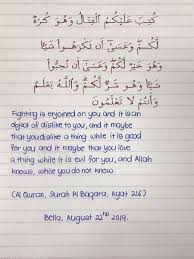 كُتِبَ عَلَيْكُمُ الْقِتَالُ وَهُوَ كُرْهٌ
لَّكُمْ وَعَسَىٰ أَن تَكْرَهُوا شَيْئًا
وَهُوَ خَيْرٌ لَّكُمْ وَعَسَىٰ أَن تُحِبُّوا
شَيْئًا وَهُوَ شَرٌّ لَّكُمْ وَاللَّهُ يَعْلَمُ
وَأَنتُمْ لَا تَعْلَمُونَ
Fighting is enjoined on you and it is an
object of dislike to you, and it maybe
that you dislike a thing while it is good
for you and it maybe that you love
a thing while it is evil for you, and Allah
knows, while you do not know.
(Al Quran, Surah Al Baqara, Ayat 216)
Bella, August 22nd 2014.